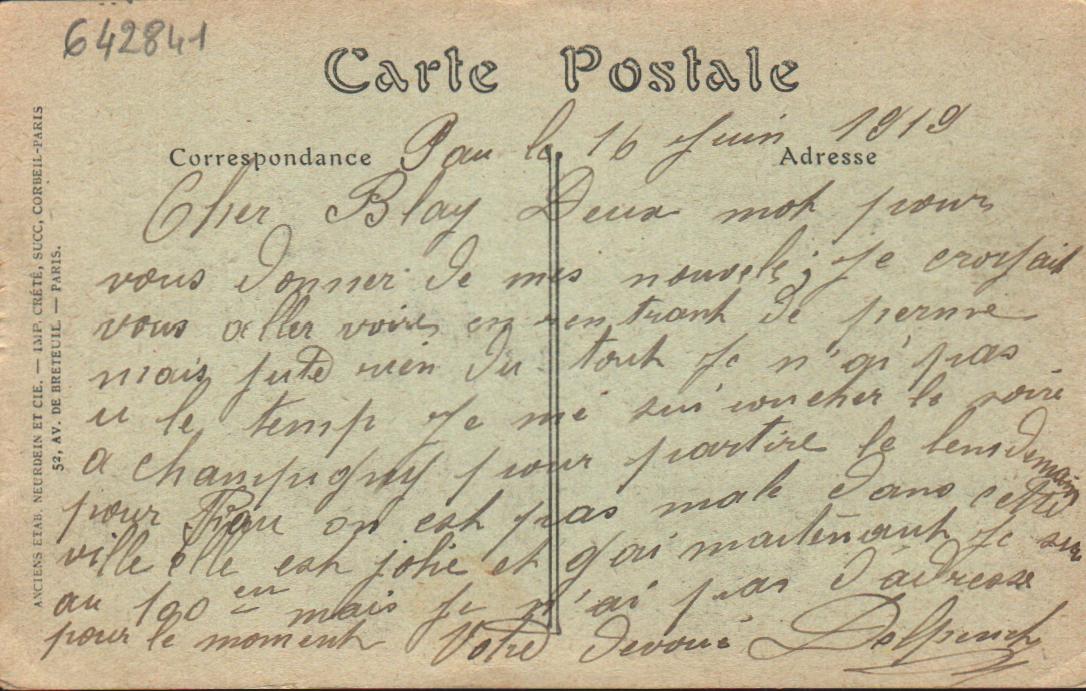 642841
Carte Postale
Correspondance
Adresse
Pau le 16 Juin 1919
Cher Blay Deux mot pour
vous donner de mes nouvele; Je croyait
vous aller voire en rentrant de perme
mais rien du tout Je n'ai pas
u le temp Je me sui coucher le soire
a champigny pour partire le lendemain
pour Pau on est pas male dans cette
ville elle est jolie et gai maitenant Je sui
au 100 mais Je n'ai pas d'adresse
pour le moment Votre devoué
ANCIENS ETAB. NEURDEIN ET CIE. — IMP. CRÉTÉ, SUCC, CORBEIL-PARIS
52, AV. DE BRETEUIL. — PARIS.